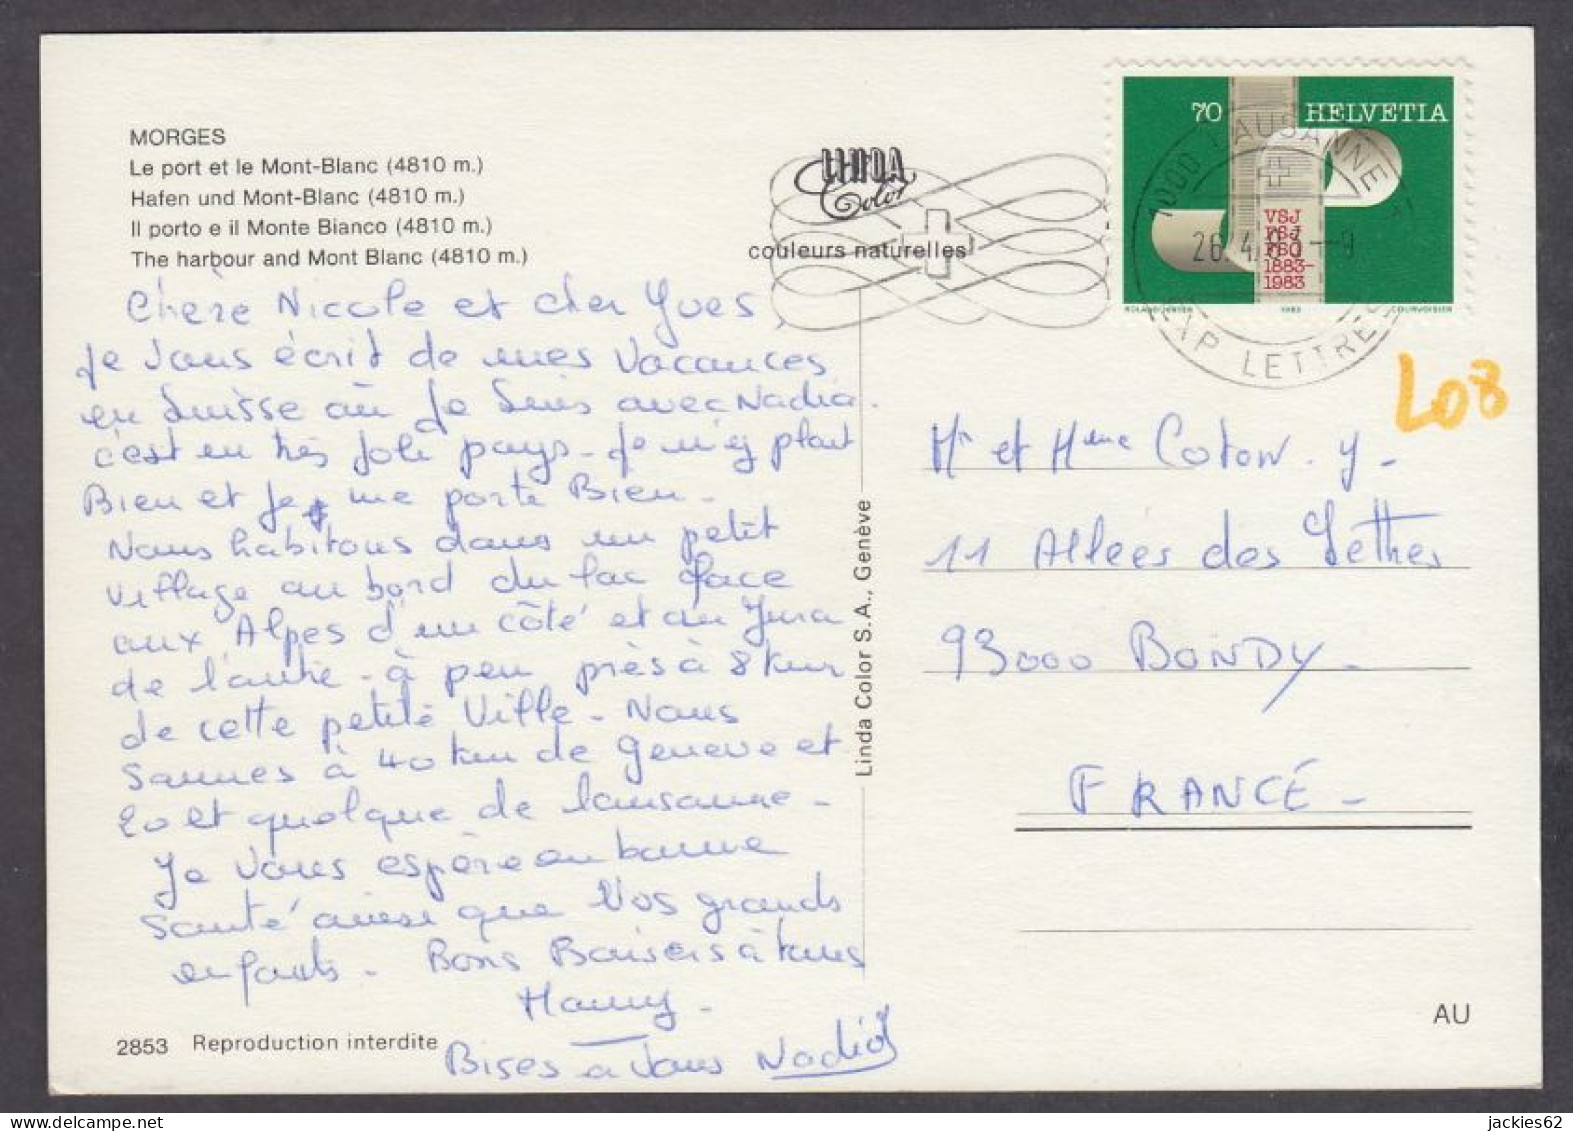 MORGES
Le port et le Mont-Blanc (4810 m.)
Hafen und Mont-Blanc (4810 m.)
Il porto e il Monte Bianco (4810 m.)
The harbour and Mont Blanc (4810 m.)
LINDA
Color
couleurs naturelles
70 HELVETIA
VSJ
FSJ
FSG
1883-
1983
ROLAND HIRTER 1983 COURVOISIER
1000 LAUSANNE 1
26.4.83-9
EXP LETTRES
L08
Chère Nicole et cher Yves,
Je vous écrit de mes vacances
en Suisse où je suis avec Nadia.
c'est un très joli pays - je m'y plait
Bien et je me porte Bien -
Nous habitons dans un petit
village au bord du lac face
aux Alpes d'un côté et au Jura
de l'autre - à peu près à 8 km
de cette petite Ville - Nous
sommes à 40 km de Geneve et
20 et quelque de lausanne -
Je vous espère en bonne
santé ainsi que Vos grands
enfants - Bons Baisers à tous
Mamy -
Bises a vous Nadia
2853 Reproduction interdite
Linda Color S.A., Genève
Mr et Mme Coton. y -
11 Allées des Lettres
93000 BONDY -
FRANCE -
AU
jackies62